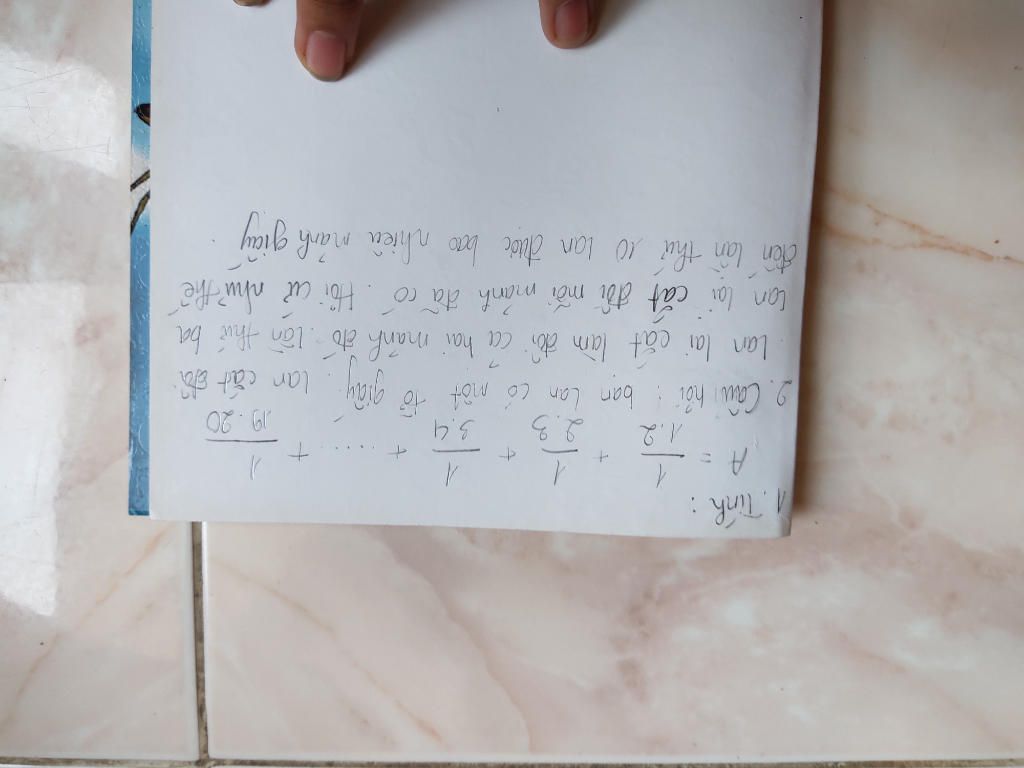 1. Tính:
A = 1/1.2 + 1/2.3 + 1/3.4 + ...... + 1/19.20
2. Câu hỏi: bạn Lan có một tờ giấy. Lan cắt đôi.
Lan lại cắt làm đôi cả hai mảnh đó. Lần thứ ba
Lan lại cắt đôi mỗi mảnh đã có. Hỏi cứ như thế
đến lần thứ 10 Lan được bao nhiêu mảnh giấy.